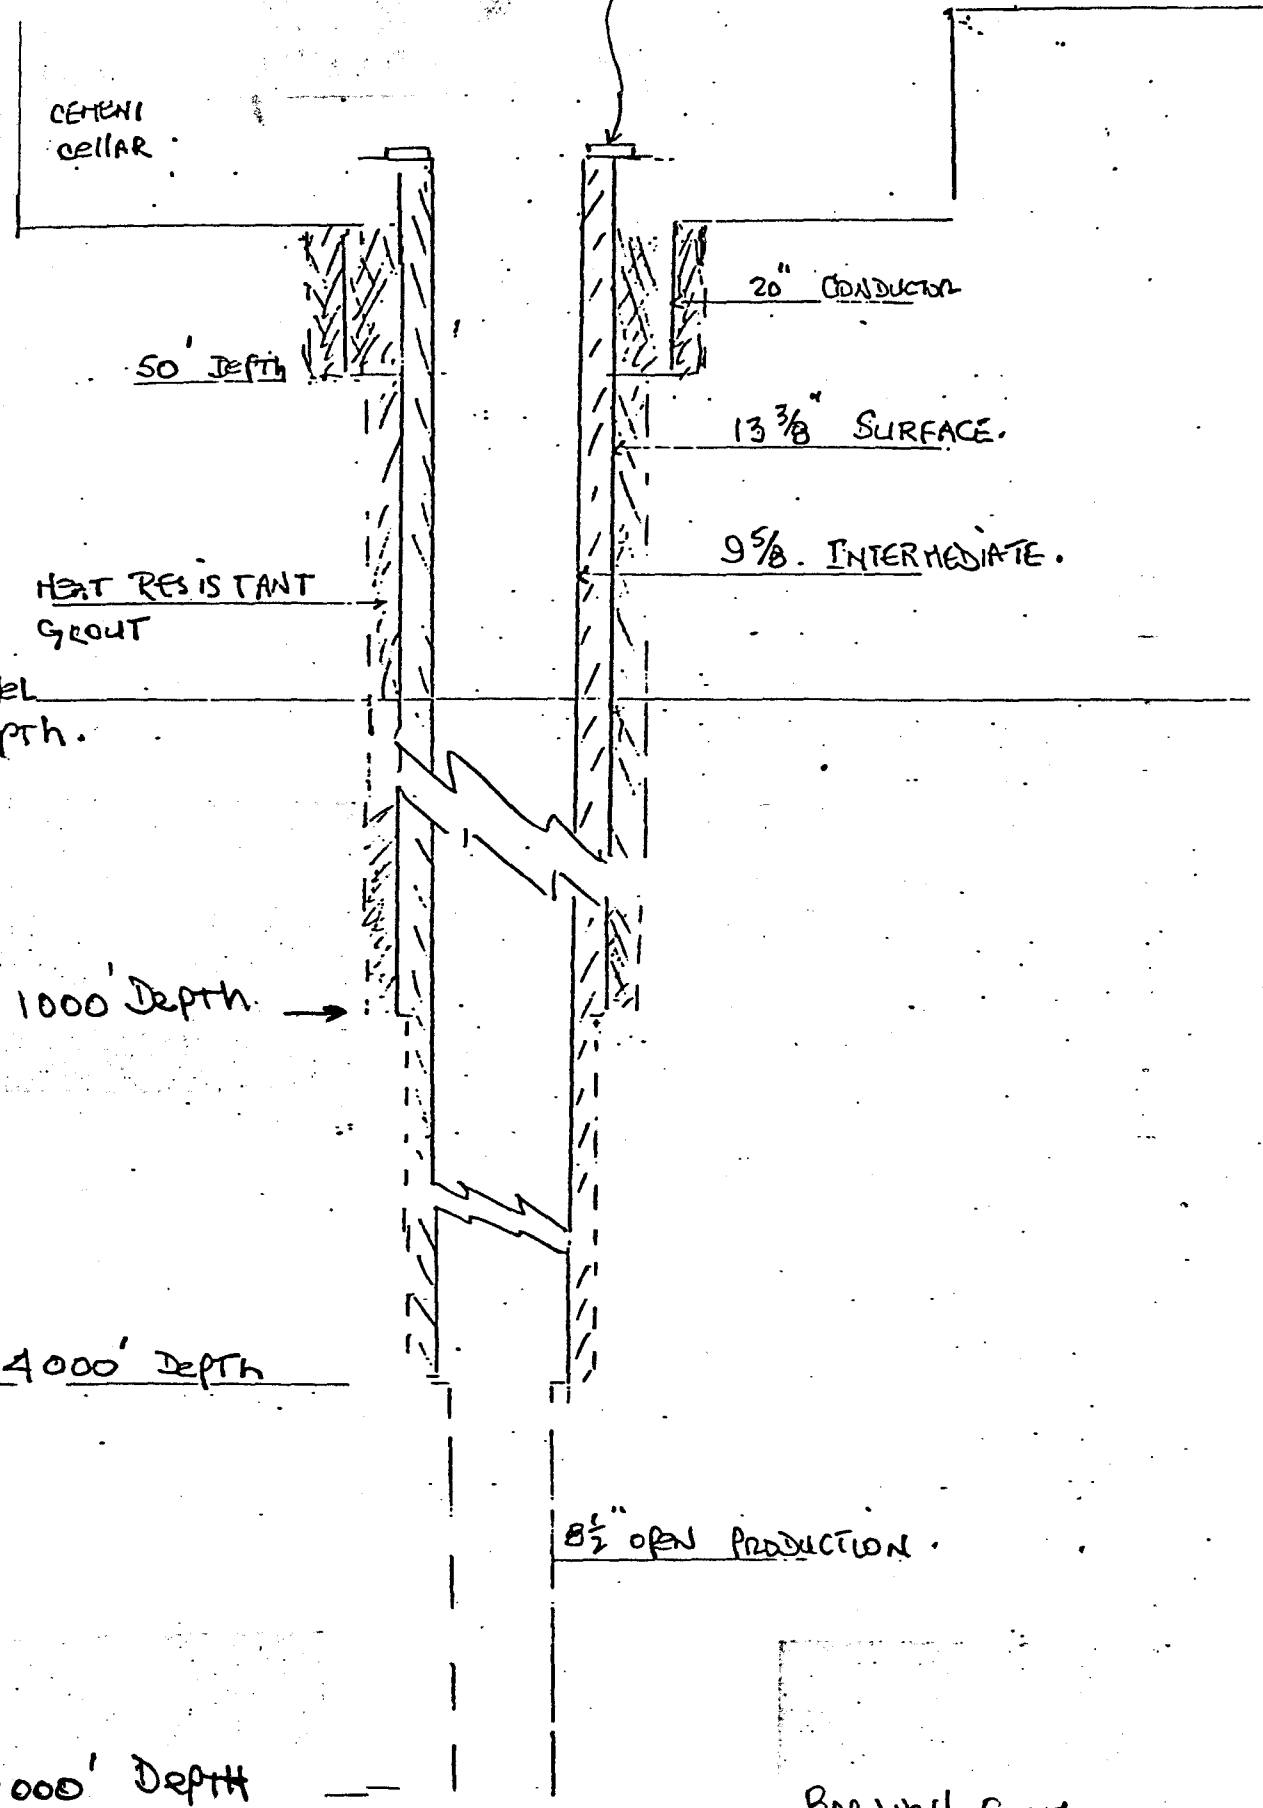 CEMENT
CellAR
20" CONDUCTOR
50' DEPTh
13 3/8" SURFACE.
9 5/8. INTERMEDIATE.
HEAT RESISTANT
GROUT
1000' DEPTh.
4000' DEPTh
8 1/2" OPEN PRODUCTION.
000' DEPTH